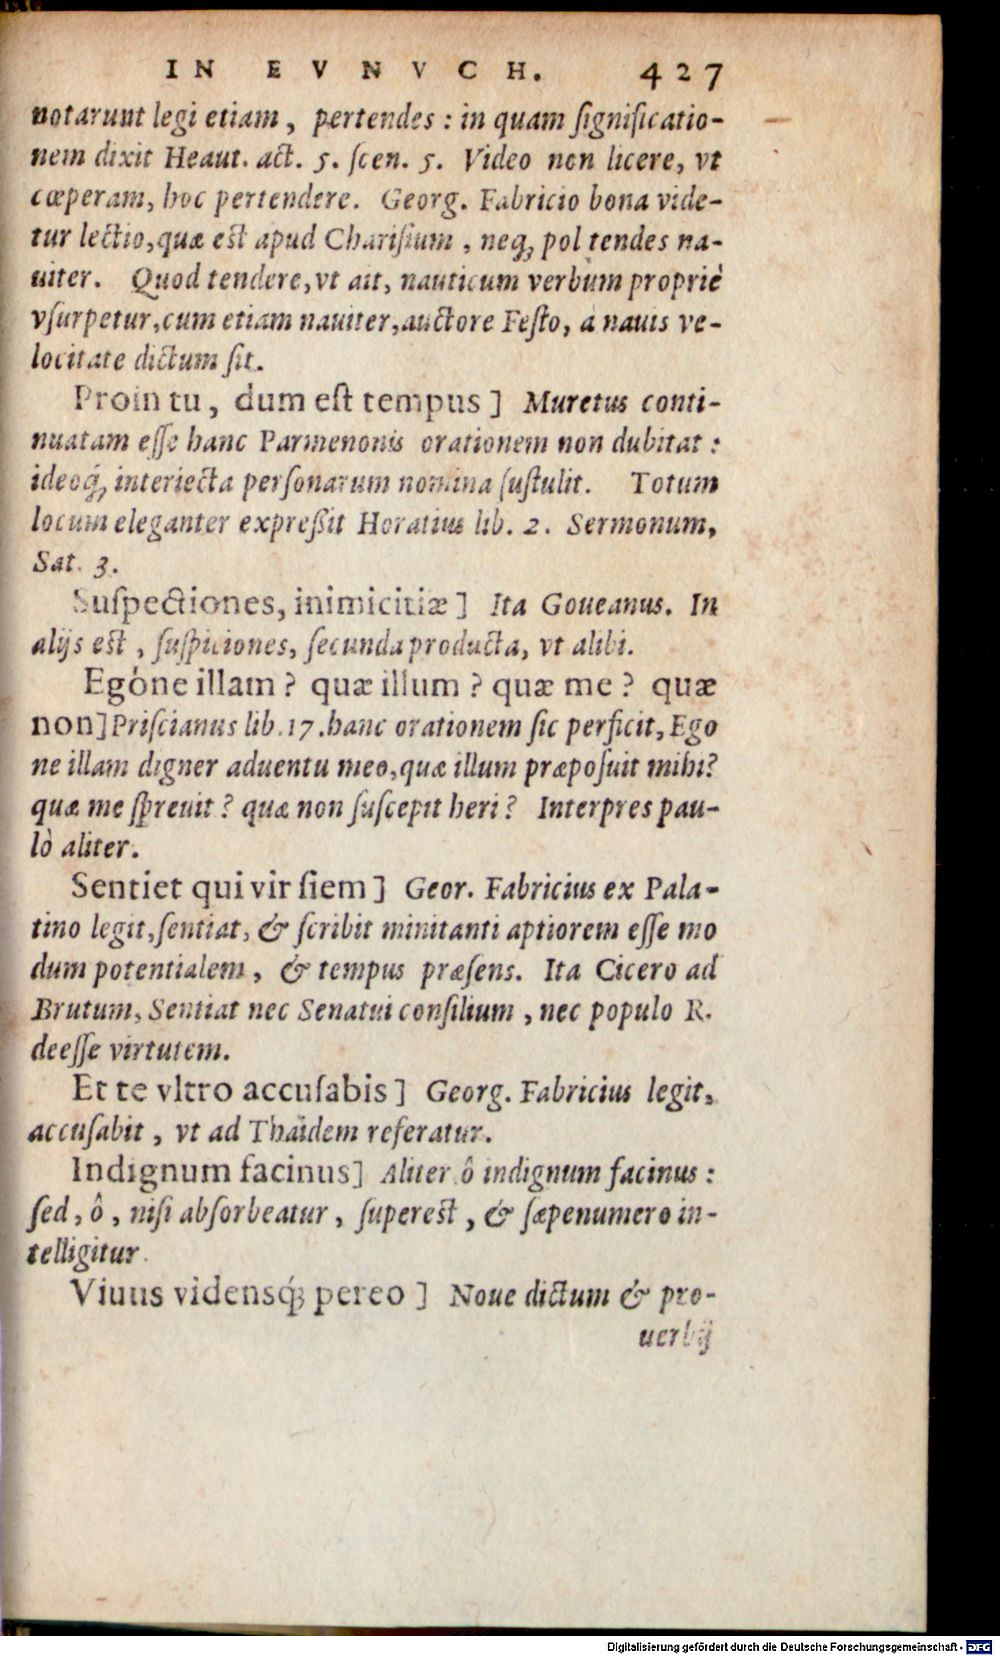 IN EVNVCH. 427
notarunt legi etiam, pertendes: in quam ſignificatio-
nem dixit Heaut. act. 5. ſcen. 5. Video non licere, vt
cœperam, hoc pertendere. Georg. Fabricio bona vide-
tur lectio, quæ est apud Chariſium, neq; pol tendes na-
uiter. Quod tendere, vt ait, nauticum verbum propriè
vſurpetur, cum etiam nauiter, auctore Feſto, à nauis ve-
locitate dictum ſit.
Proin tu, dum eſt tempus] Muretus conti-
nuatam eſſe hanc Parmenonis orationem non dubitat:
ideoq́; interiecta perſonarum nomina ſuſtulit. Totum
locum eleganter expreßit Horatius lib. 2. Sermonum,
Sat. 3.
Suſpectiones, inimicitiæ] Ita Goueanus. In
alijs est, ſuſpiciones, ſecunda producta, vt alibi.
Egóne illam? quæ illum? quæ me? quæ
non] Priſcianus lib. 17. hanc orationem ſic perficit, Ego
ne illam digner aduentu meo, quæ illum præpoſuit mihi?
quæ me ſpreuit? quæ non ſuſcepit heri? Interpres pau-
lò aliter.
Sentiet qui vir ſiem] Geor. Fabricius ex Pala-
tino legit, ſentiat, & ſcribit minitanti aptiorem eſſe mo
dum potentialem, & tempus præſens. Ita Cicero ad
Brutum, Sentiat nec Senatui conſilium, nec populo R.
deeſſe virtutem.
Et te vltro accuſabis] Georg. Fabricius legit,
accuſabit, vt ad Thaidem referatur.
Indignum facinus] Aliter ô indignum facinus:
ſed, ô, niſi abſorbeatur, ſuperest, & ſæpenumero in-
telligitur.
Viuus vidensq́; pereo] Noue dictum & pro-
uerbij
Digitalisierung gefördert durch die Deutsche Forschungsgemeinschaft - DFG